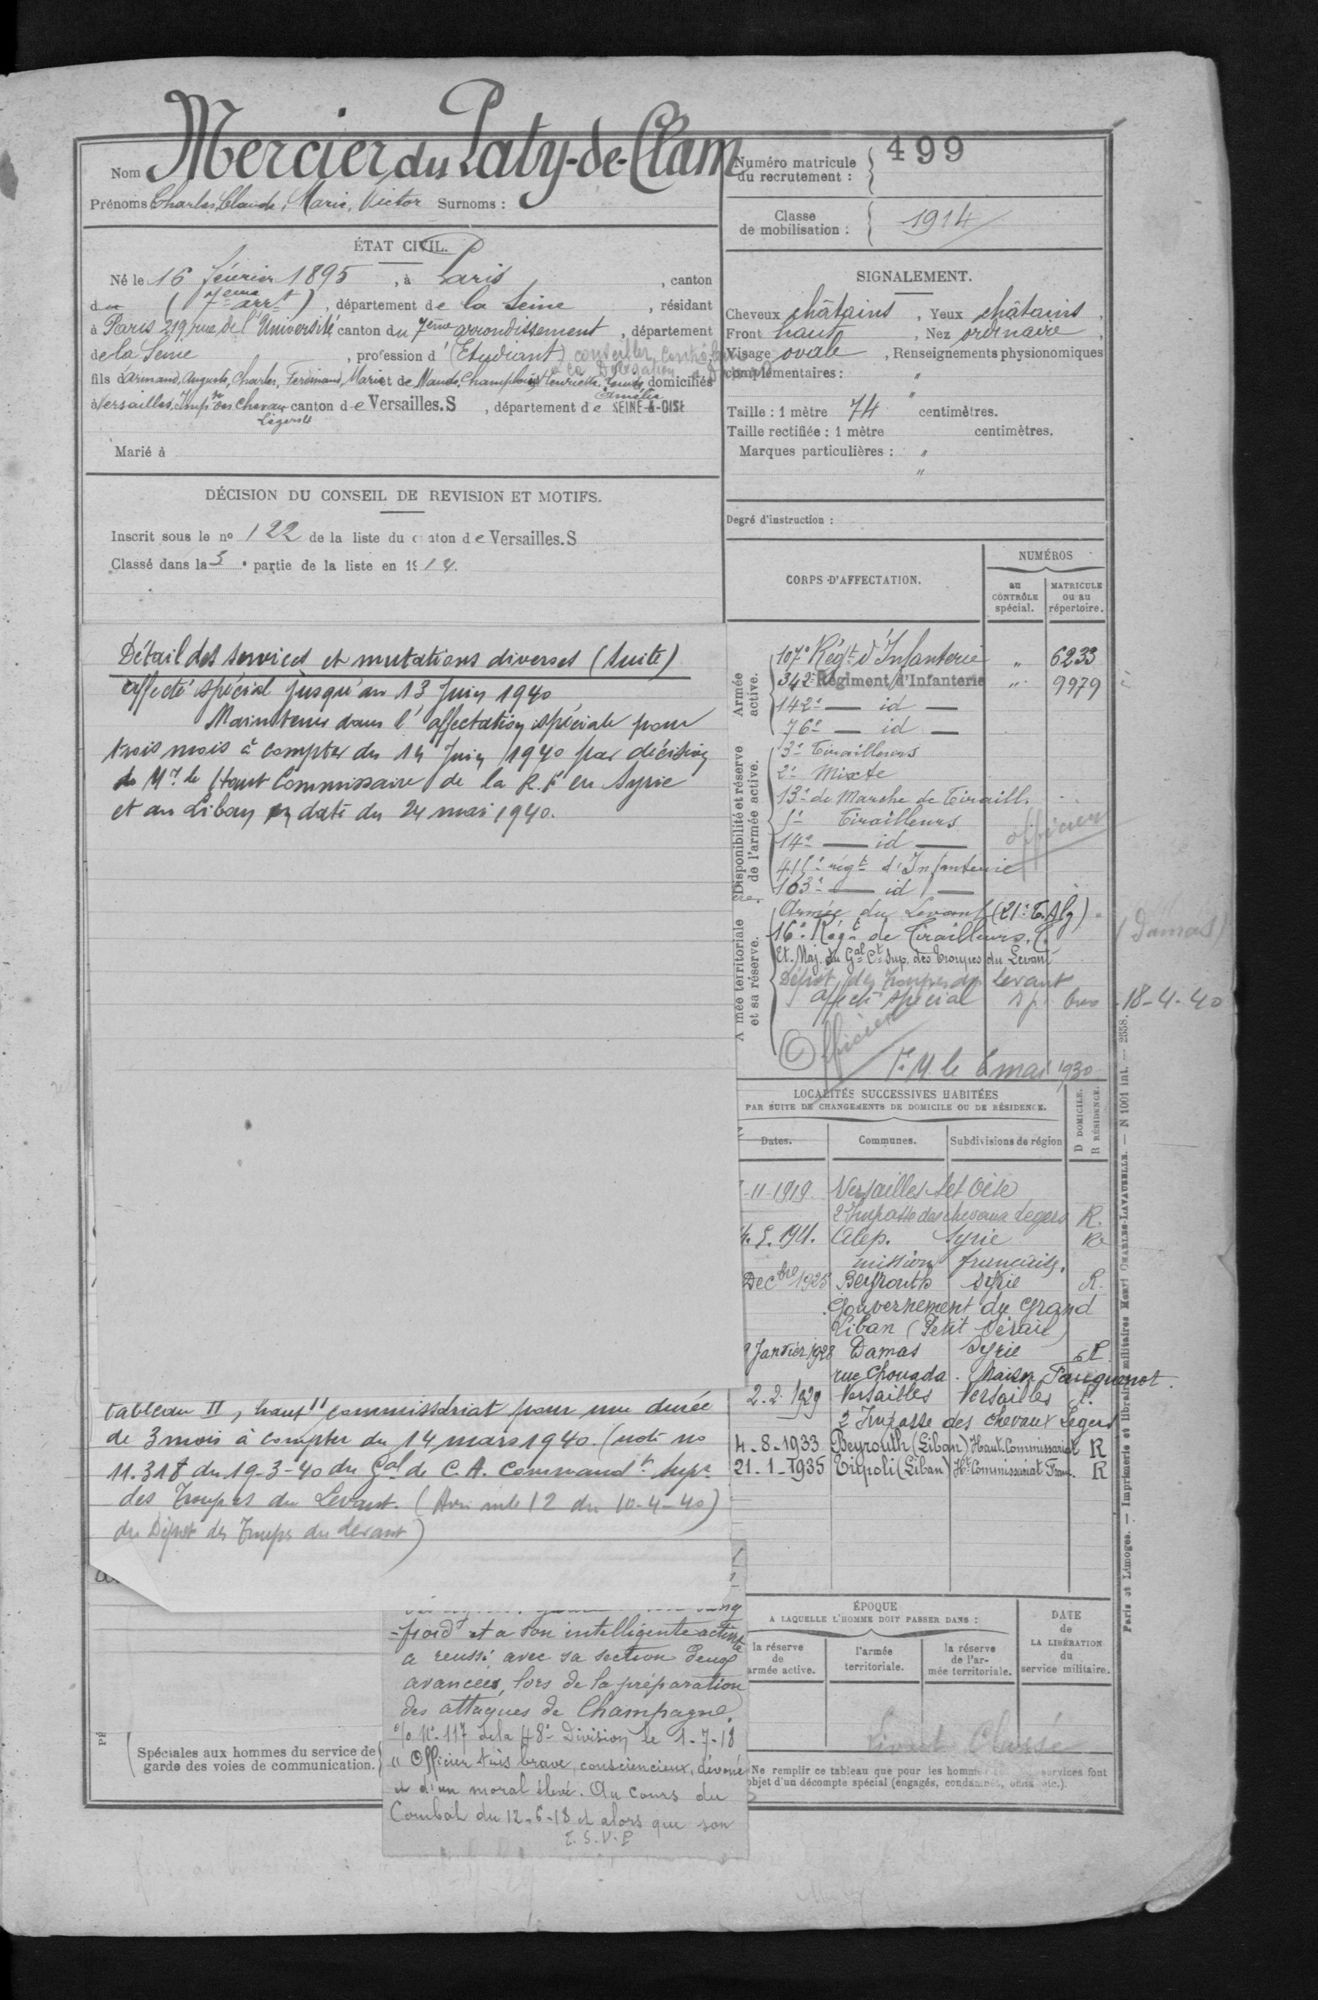 Nom Mercier du Paty-de-Clam
Prénoms Charles, Claude, Marie, Victor Surnoms :
Numéro matricule du recrutement : 499
Classe de mobilisation : 1914
ÉTAT CIVIL.
Né le 16 février 1895, à Paris, canton
d (7eme arrt), département de la Seine, résidant
à Paris 219, rue de l'Université canton du 7ème arrondissement, département
de la Seine, profession d' (Etudiant) conseiller
à la Délégation
fils d'Armand, Auguste, Charles, Ferdinand, Marie et de Henriette domiciliés
Amélie
à Versailles, Imp. des Chevaux canton de Versailles.S, département de SEINE-&-OISE
Légers
Marié à
SIGNALEMENT.
Cheveux châtains, Yeux châtains,
Front haut, Nez ordinaire,
Visage ovale, Renseignements physionomiques
complémentaires : "
Taille : 1 mètre 74 centimètres.
Taille rectifiée : 1 mètre centimètres.
Marques particulières : "
"
Degré d'instruction :
DÉCISION DU CONSEIL DE REVISION ET MOTIFS.
Inscrit sous le no 122 de la liste du canton de Versailles.S
Classé dans la 5e partie de la liste en 1914.
Détail des services et mutations diverses (suite)
affecté spécial jusqu'au 13 Juin 1940
Maintenu dans l'affectation spéciale pour
trois mois à compter du 14 Juin 1940 par décision
de Mr. le Haut Commissaire de la R.F en Syrie
et au Liban en date du 24 mai 1940.
tableau II, haut commissariat pour une durée
de 3 mois à compter du 14 mars 1940. (note no
11.318 du 19-3-40 du Gal de C.A. Commandt Supr
des Troupes du Levant. (Avis no 12 du 10-4-40)
du Dépôt des Troupes du Levant)
CORPS D'AFFECTATION.
NUMÉROS
au CONTRÔLE spécial.
MATRICULE OU AU répertoire.
Armée active.
107e Régt d'Infanterie " 6233
342e Régiment d'Infanterie " 9979
142e — id —
76e — id —
Disponibilité et réserve de l'armée active.
3e Tirailleurs
2e Mixte
13e de Marche de Tiraill.
1e Tirailleurs
14e — id —
officier
415e régt d'Infanterie
163e — id —
Armée territoriale et sa réserve.
Armée du Levant (21e T. Alg)
16e Régt de Tirailleurs. (Damas)
Et. Maj. du Gal Ct Sup. des Troupes du Levant
Dépôt des troupes du Levant
Affecté spécial 18-4-40
Officier
F.M. le 6 mai 1930
LOCALITÉS SUCCESSIVES HABITÉES
PAR SUITE DE CHANGEMENTS DE DOMICILE OU DE RÉSIDENCE.
Dates. Communes. Subdivisions de région D DOMICILE. R RÉSIDENCE.
-11-1919 Versailles S et Oise
2 Impasse des chevaux Legers R.
4.5.1921. Alep. Syrie Re
mission française.
Decbre 1925 Beyrouth Syrie R.
Gouvernement du Grand
Liban (Petit Sérail)
Janvier 1928 Damas Syrie R
rue Chouada. Maison Fauquenot.
2.2.1929 Versailles Versailles R.
2 Impasse des chevaux Legers
4-8-1933 Beyrouth (Liban) Haut. Commissariat R
21-1-1935 Tripoli (Liban) Ht Commissariat Franc. R
-froid et a son intelligente activité
a reussi avec sa section
avancées, lors de la préparation
des attaques de Champagne.
O/o No 117 de la 48e Division le 1-7-18
" Officier très brave, consciencieux, dévoué
et d'un moral élevé. Au cours du
Combat du 12-6-18 et alors que son
T.S.V.P
Spéciales aux hommes du service de
garde des voies de communication.
ÉPOQUE
A LAQUELLE L'HOMME DOIT PASSER DANS :
la réserve de armée active.
l'armée territoriale.
la réserve de l'armée territoriale.
DATE de LA LIBÉRATION du service militaire.
Ne remplir ce tableau que pour les hommes services font
objet d'un décompte spécial (engagés, condamnés, omis etc.).
Paris et Limoges. — Imprimerie et librairie militaires Henri CHARLES-LAVAUZELLE. — N 1001 int. — 2358.